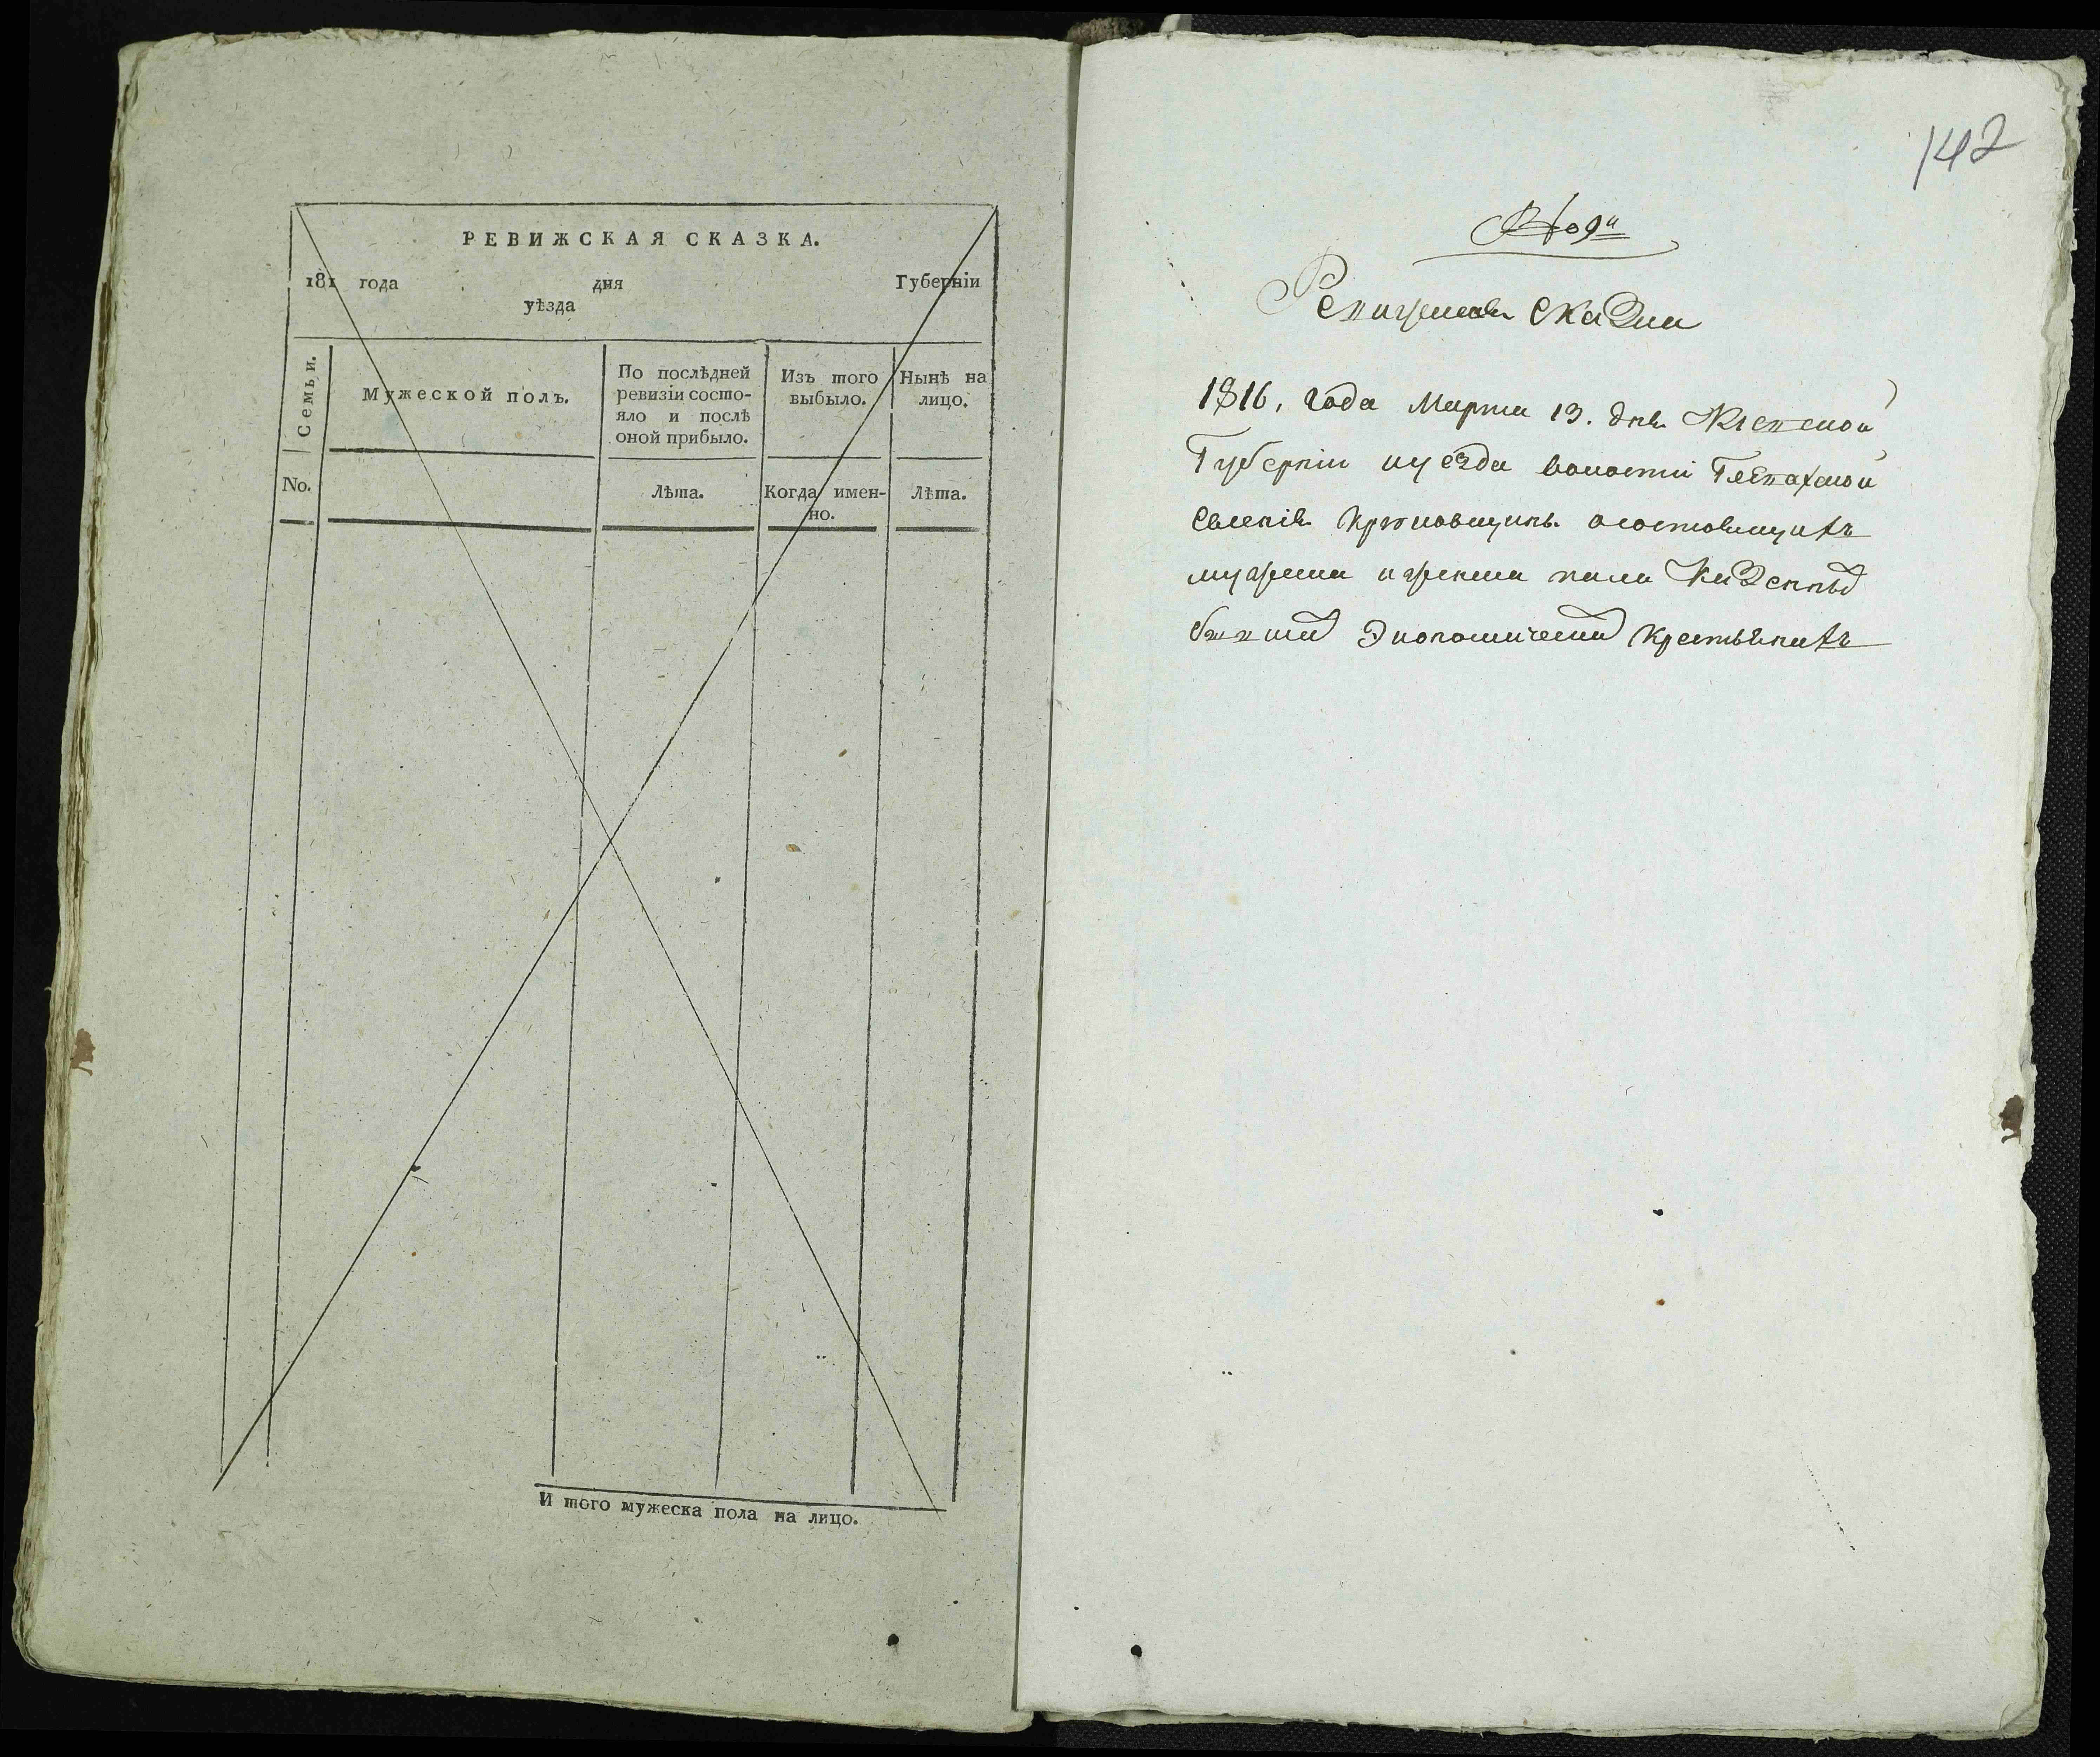 РЕВИЖСКАЯ СКАЗКА.
181 года дня Губерніи
уѣзда
Семьи.
Мужеской полъ.
По послѣдней ревизіи состо-
яло и послѣ
оной прибыло.
Изъ того
выбыло.
Нынѣ на
лицо.
No.
Лѣта.
Когда имен-
но.
Лѣта.
И того мужеска пола на лицо.
142
Ревижская сказка
1816, года Марта 13. дня Кіевской
Губерніи и уезда волости Глевахской
селенія Крюковщины о состоящихъ
мужеска и женска пола казенныхъ
бывшихъ Экономическихъ крестьянахъ